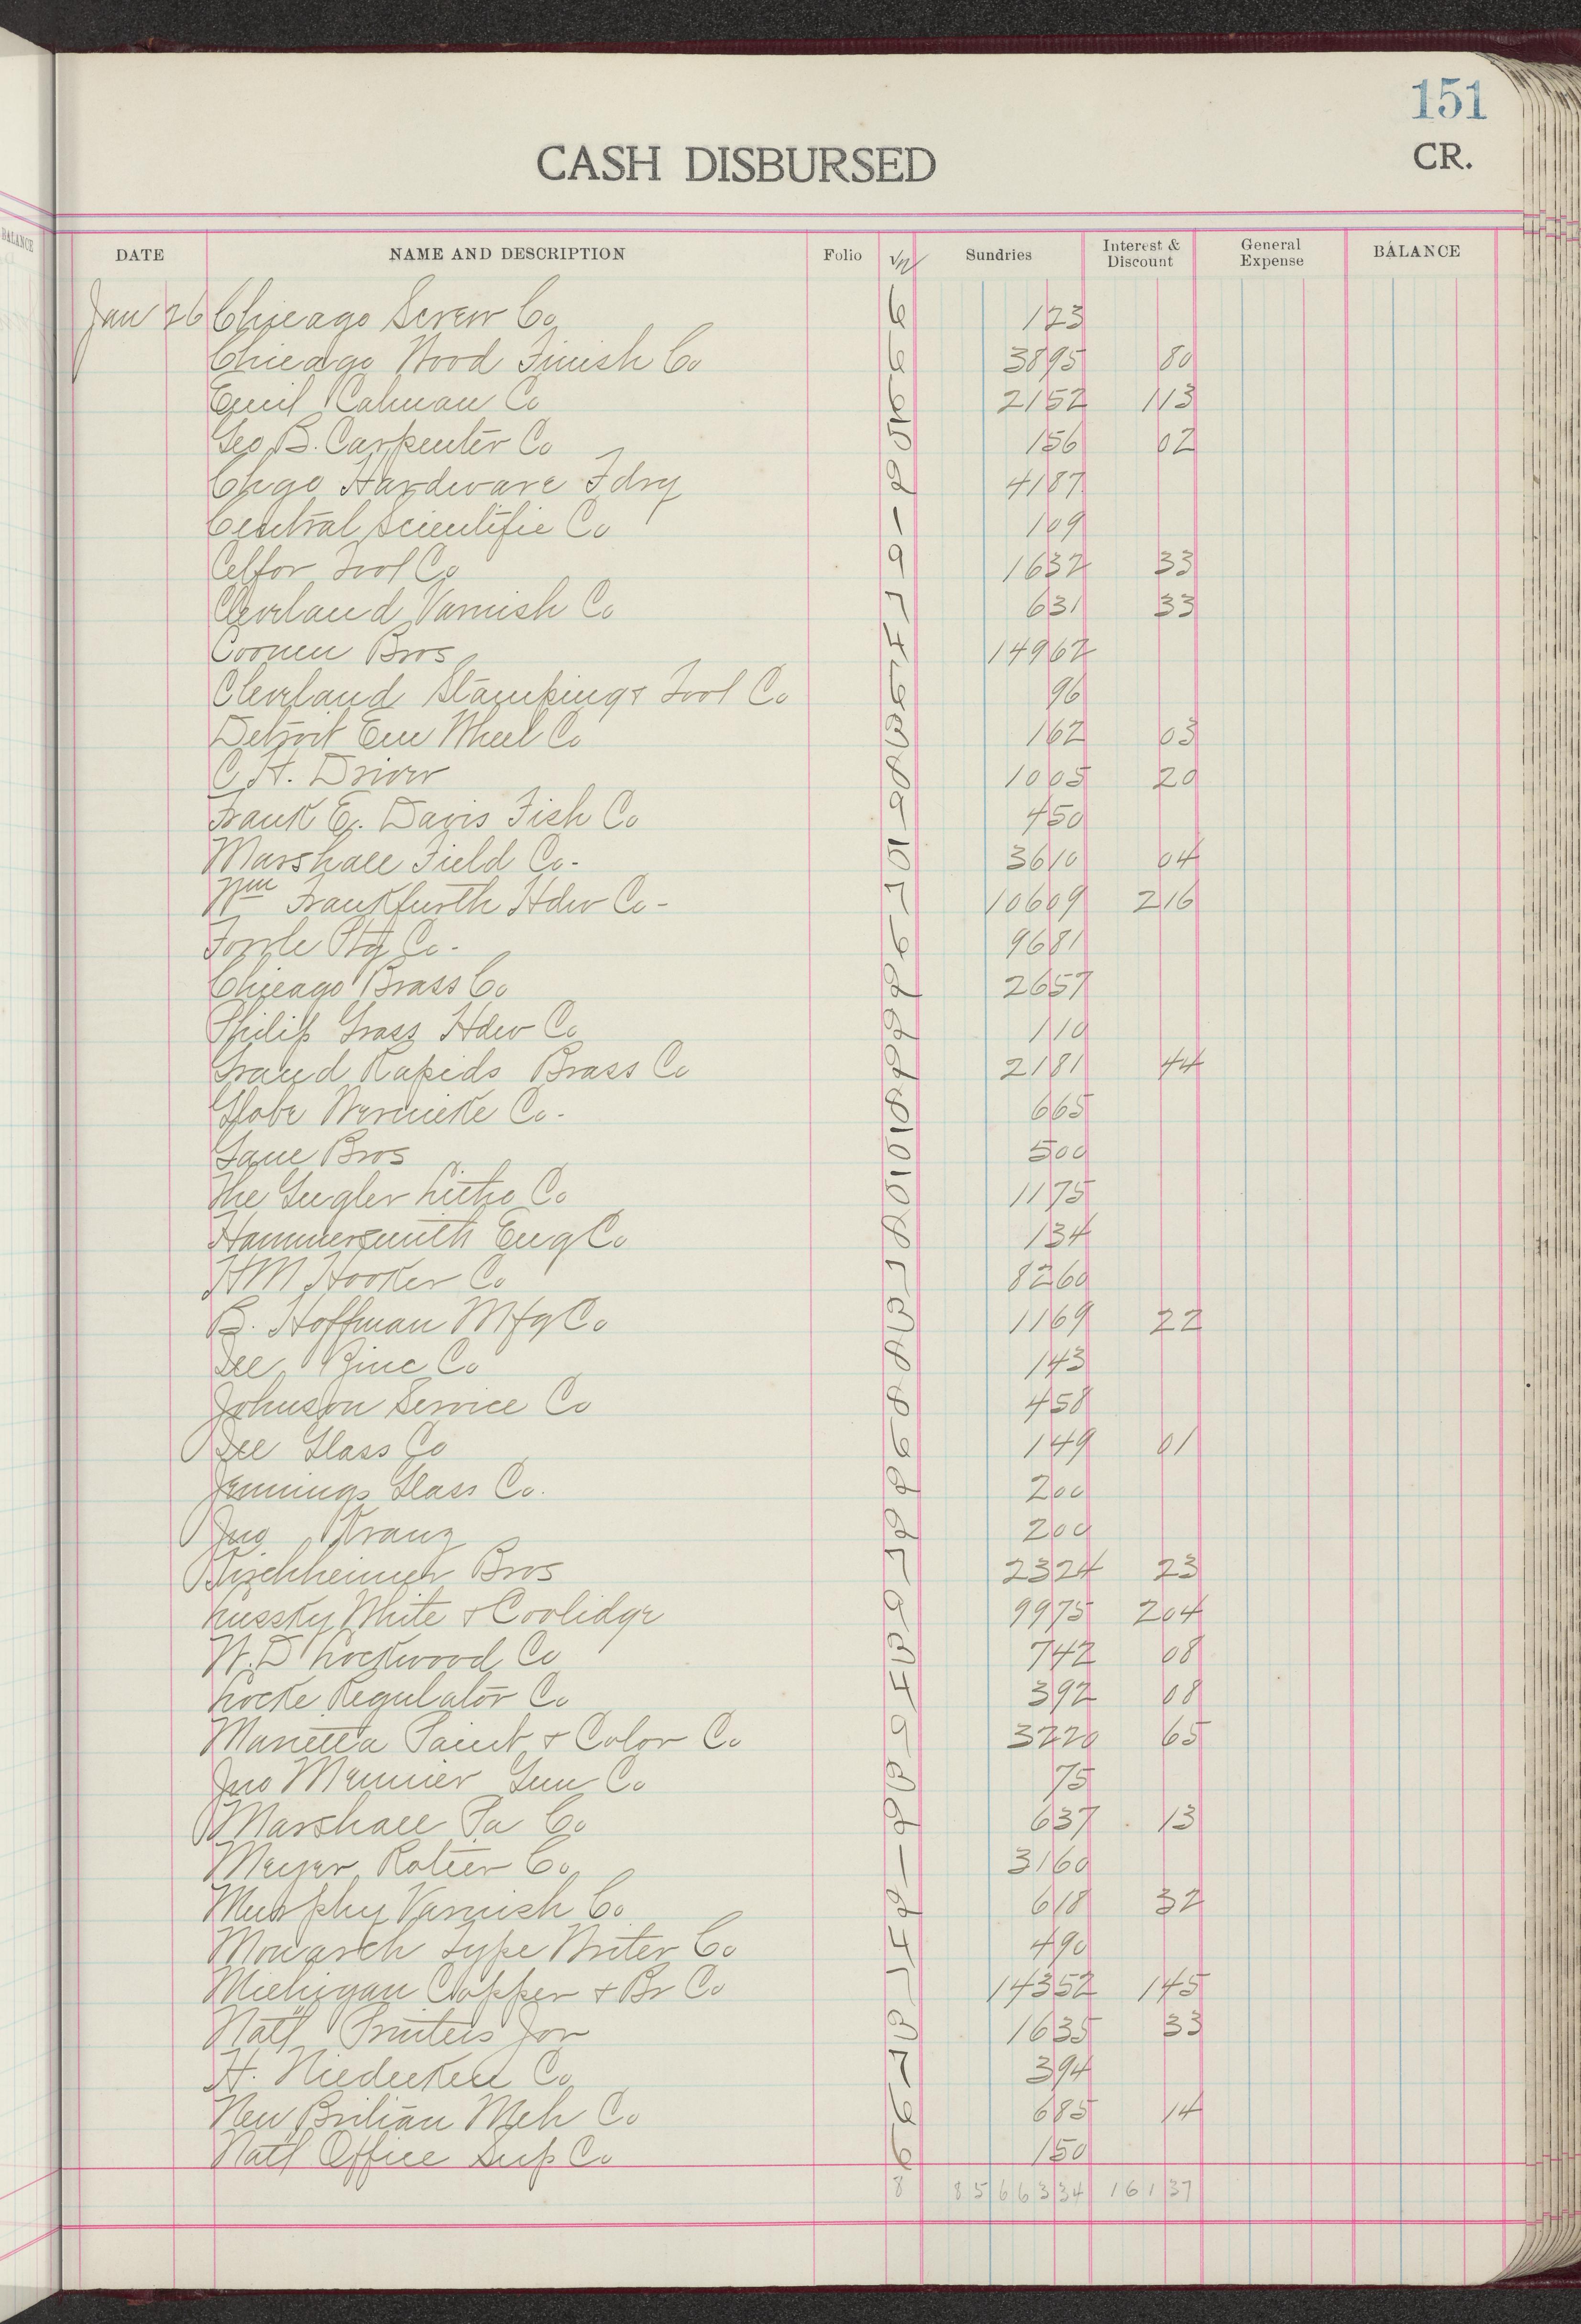 151
CASH DISBURSED CR.
DATE NAME AND DESCRIPTION Folio Sundries Interest & Discount General Expense BALANCE
Jan 26 Chicago Screw Co 6 1 23
Chicago Wood Finish Co 6 38 95 80
Emil Calman Co 6 21 52 1 13
Geo B. Carpenter Co 5 1 56 02
Chgo Hardware Fdry 2 41 87
Central Scientific Co 1 1 09
Celfor Tool Co 9 16 32 33
Cleveland Varnish Co 7 6 31 33
Coonen Bros 4 149 62
Cleveland Stamping & Tool Co 6 96
Detroit Em Wheel Co 3 1 62 03
C H. Driver 8 10 05 20
Frank E. Davis Fish Co 9 4 50
Marshall Field Co - 5 36 10 04
Wm Frankfurth Hdw Co - 7 106 09 2 16
Fowle Ptg Co - 6 96 81
Chicago Brass Co 2 26 57
Philip Gross Hdw Co 2 1 10
Grand Rapids Brass Co 2 21 81 44
Globe Wernicke Co - 8 6 65
Gane Bros 5 5 00
The Gugler Litho Co 5 11 75
Hammersmith Eng Co 8 1 34
H M Hooker Co 7 82 60
B. Hoffman Mfg Co 3 11 69 22
Ill Zinc Co 8 1 43
Johnson Service Co 8 4 58
Ill Glass Co 6 1 49 01
Jennings Glass Co. 2 2 00
Jno Kranz 2 2 00
Kirchheimer Bros 7 23 24 23
Lussky White & Coolidge 9 99 75 2 04
W. D Lockwood Co 3 7 42 08
Locke Regulator Co 4 3 92 08
Marietta Paint & Color Co 9 32 20 65
Jno Meunier Gun Co 3 75
Marshall Pa Co 2 6 37 13
Meyer Rotier Co 1 31 60
Murphy Varnish Co 2 6 18 32
Monarch Type Writer Co 4 4 90
Michigan Copper & Br Co 7 143 52 1 45
Natl Printers Jor 3 16 35 33
H. Niedecken Co 7 3 94
New Britian Mch Co 6 6 85 14
Natl Office Sup Co 6 1 50
8 85663 34 161 37